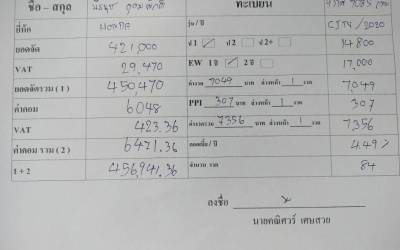 ชื่อ – สกุล ทะเบียน
ยี่ห้อ HONDA รุ่น / ปี CITY / 2020
ยอดจัด 421,000 ป1 ป2 ป2+ 14800
VAT 29,470 EW 1ปี 2ปี 17,000
ยอดจัดรวม ( 1 ) 450,470 ค่างวด 7049 บาท ล่วงหน้า 1 งวด 7,049
ค่าคอม 6048 PPI 307 บาท ล่วงหน้า 1 งวด 307
VAT 423.36 ค่างวดรวม 7356 บาท ล่วงหน้า 1 งวด 7,356
ค่าคอม รวม ( 2 ) 6471.36 ดอกเบี้ย / ปี 4.49%
1 + 2 456,941.36 จำนวน งวด 84
ลงชื่อ x
นายคณิศวร์ เศษสวย